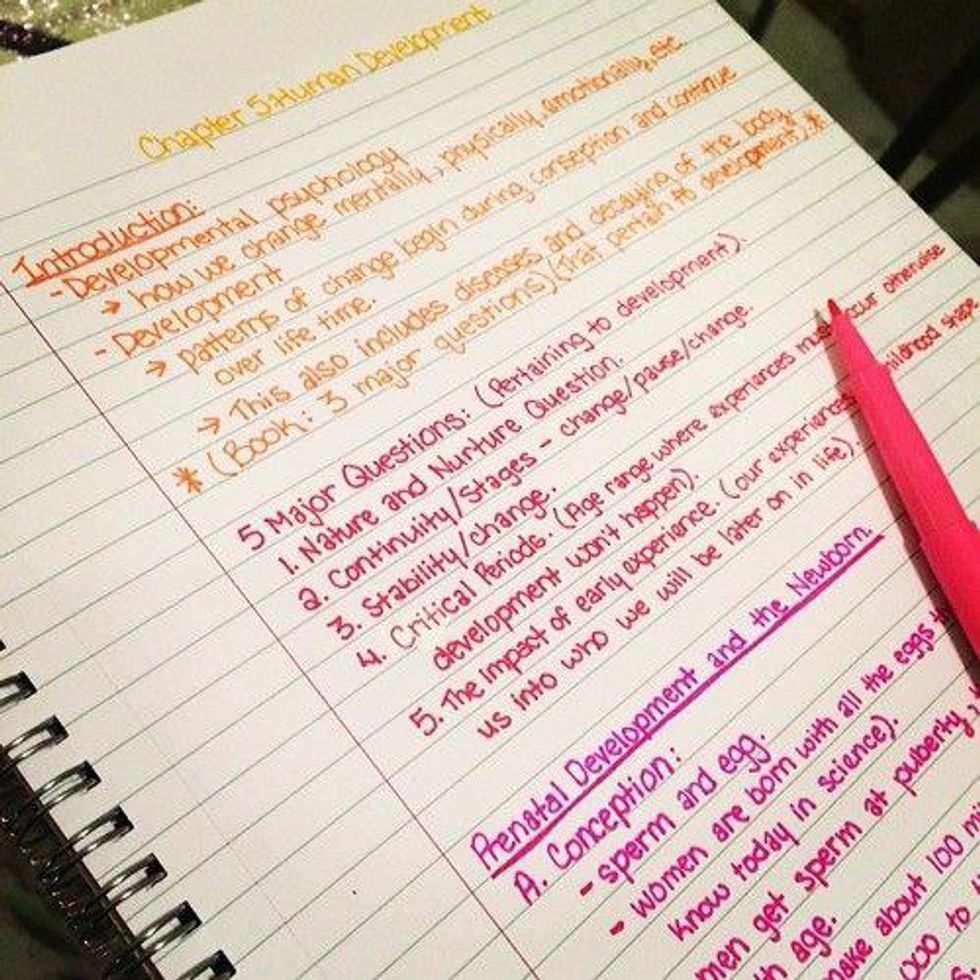 Chapter 5: Human Development
Introduction:
- Developmental psychology
→ how we change mentally, physically, emotionally, etc.
- Development
→ patterns of change begin during conseption and continue
over life time.
→ This also includes diseases and decaying of the body.
* (Book: 3 major questions) (that pertain to development) *
5 Major Questions: (Pertaining to development).
1. Nature and Nurture Question.
2. Continuity/Stages - change/pause/change.
3. Stability/change.
4. Critical Periods. (Age range where experiences must occur otherwise
development won't happen).
5. The impact of early experience. (our experiences childhood shape
us into who we will be later on in life).
Prenatal Development and the Newborn.
A. Conception:
- sperm and egg.
- women are born with all the eggs
know today in science).
men get sperm at puberty,
age.
make about 100
000 to